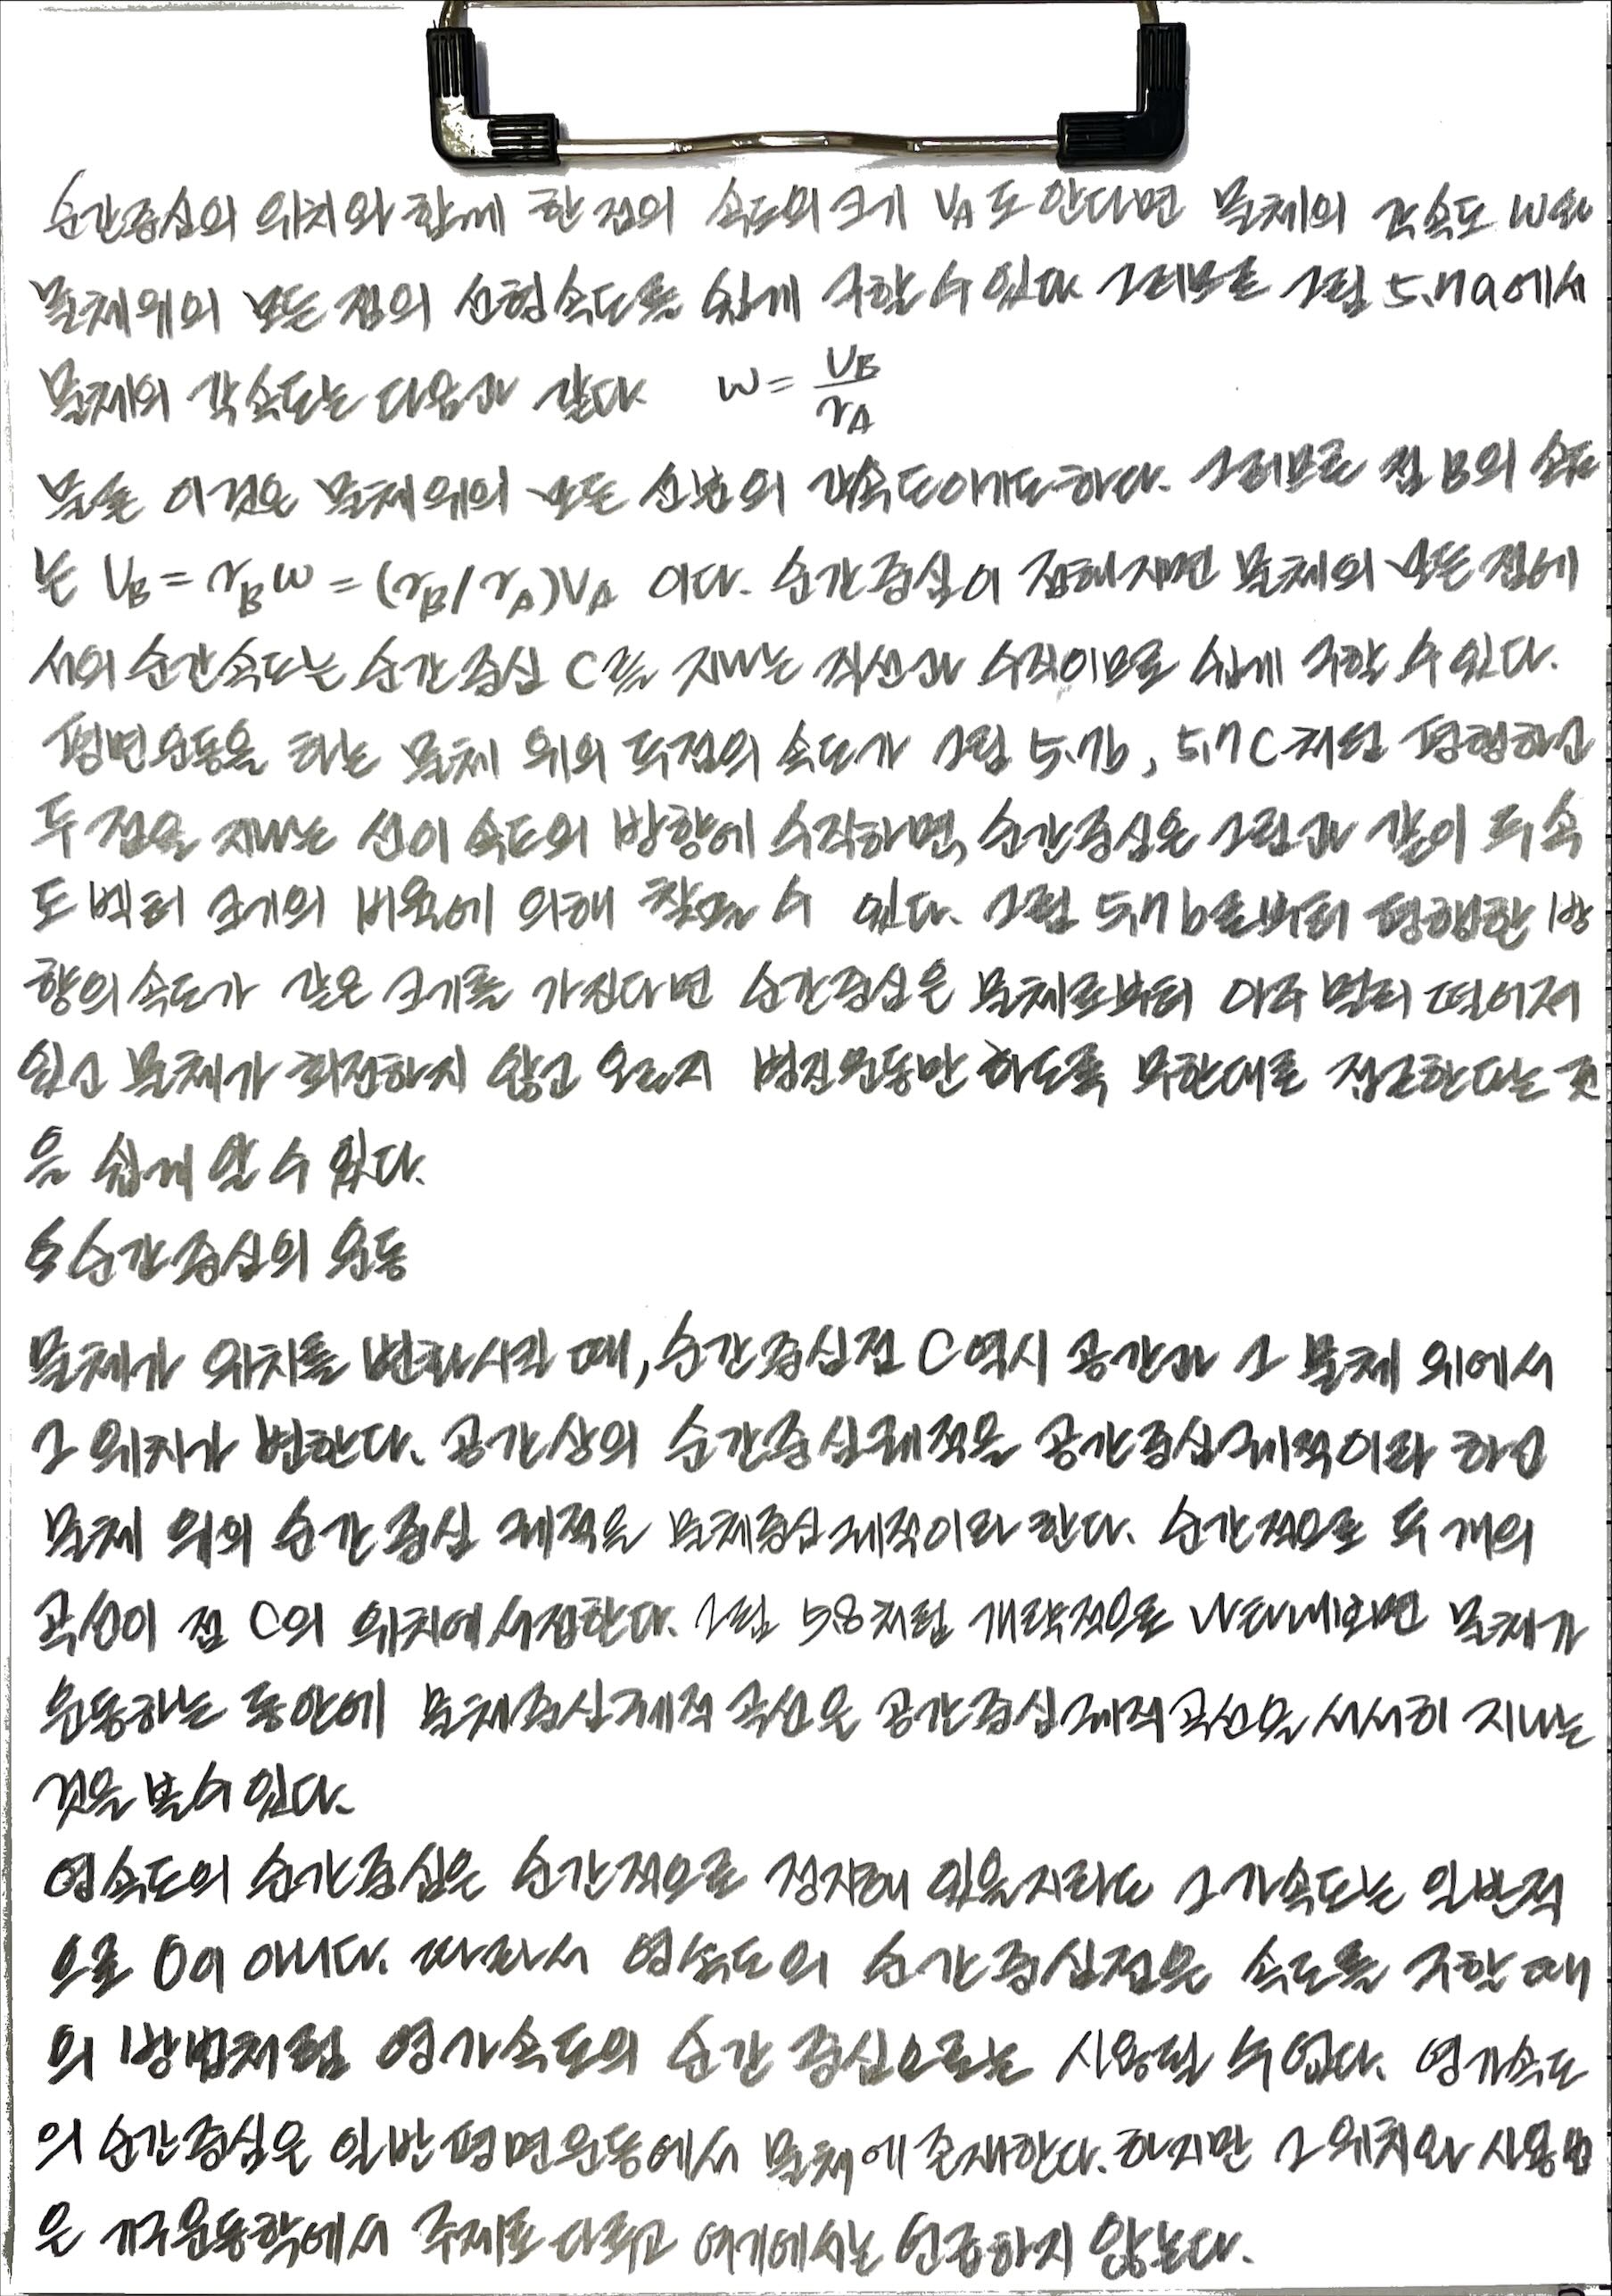 순간중심의 위치와 함께 한 점의 속도의 크기 VA도 안다면 물체의 각속도 ω와
물체위의 모든 점의 선형속도를 쉽게 구할 수 있다 그러므로 그림 5.7a에서
물체의 각속도는 다음과 같다 ω = VB/rA
물론 이것은 물체위의 모든 선분의 각속도이기도하다. 그러므로 점 B의 속도
는 VB = rBω = (rB/rA)VA 이다. 순간중심이 정해지면 물체의 모든 점에
서의 순간속도는 순간중심 C를 지나는 직선과 수직이므로 쉽게 구할 수 있다.
평면운동을 하는 물체 위의 두점의 속도가 그림 5.7b, 5.7C처럼 평행하고
두 점을 지나는 선이 속도의 방향에 수직하면, 순간중심은 그림과 같이 두 속
도 벡터 크기의 비율에 의해 찾을 수 있다. 그림 5.7b로부터 평행한 방
향의 속도가 같은 크기를 가진다면 순간중심은 물체로부터 아주 멀리 떨어져
있고 물체가 회전하지 않고 오로지 병진운동만 하도록 무한대로 접근한다는 것
을 쉽게 알 수 있다.
순간중심의 운동
물체가 위치를 변화시킬 때, 순간중심점 C역시 공간과 그 물체 위에서
그 위치가 변한다. 공간상의 순간중심궤적을 공간중심궤적이라 하고
물체 위의 순간중심 궤적을 물체중심궤적이라 한다. 순간적으로 두 개의
곡선이 점 C의 위치에서접한다. 그림 5.8처럼 개략적으로 나타내보면 물체가
운동하는 동안에 물체중심궤적 곡선은 공간중심궤적곡선을 서서히 지나는
것을 볼수 있다.
영속도의 순간중심은 순간적으로 정지해 있을지라도 그 가속도는 일반적
으로 0이 아니다. 따라서 영속도의 순간중심점은 속도를 구할 때
의 방법처럼 영가속도의 순간 중심으로는 사용될 수 없다. 영가속도
의 순간중심은 일반평면운동에서 물체에 존재한다. 하지만 그 위치와 사용법
은 기구운동학에서 주제로 다루고 여기에서는 언급하지 않는다.